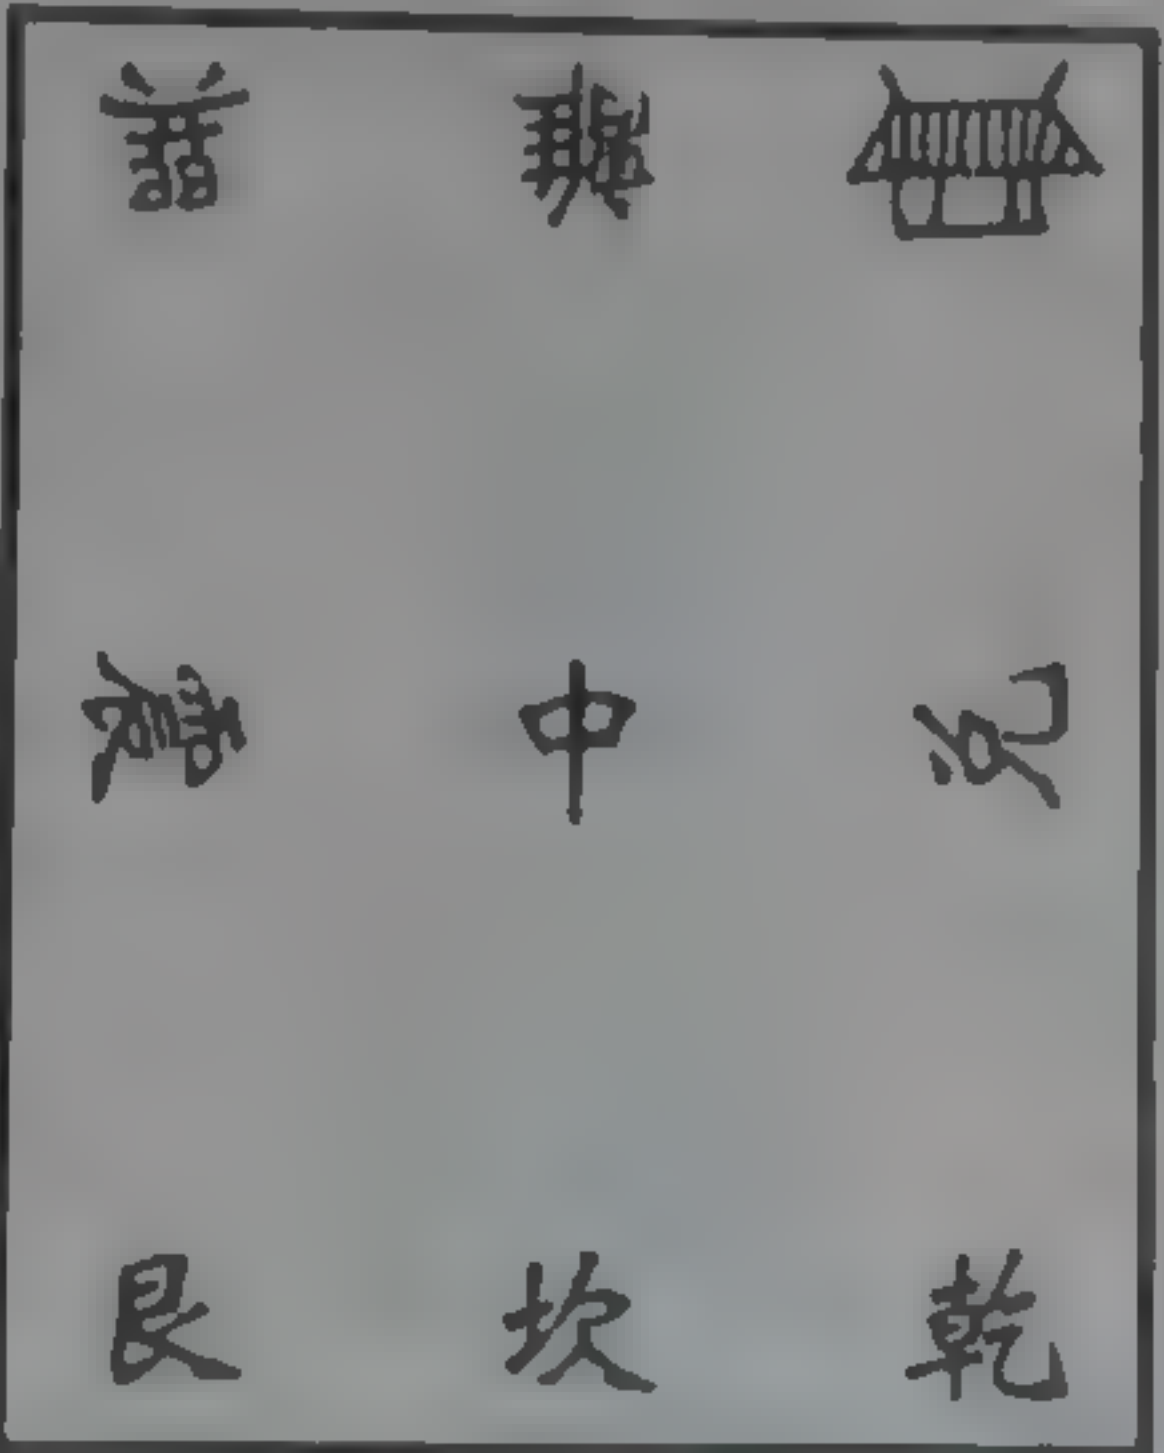 巽 離
震 中 兌
艮 坎 乾